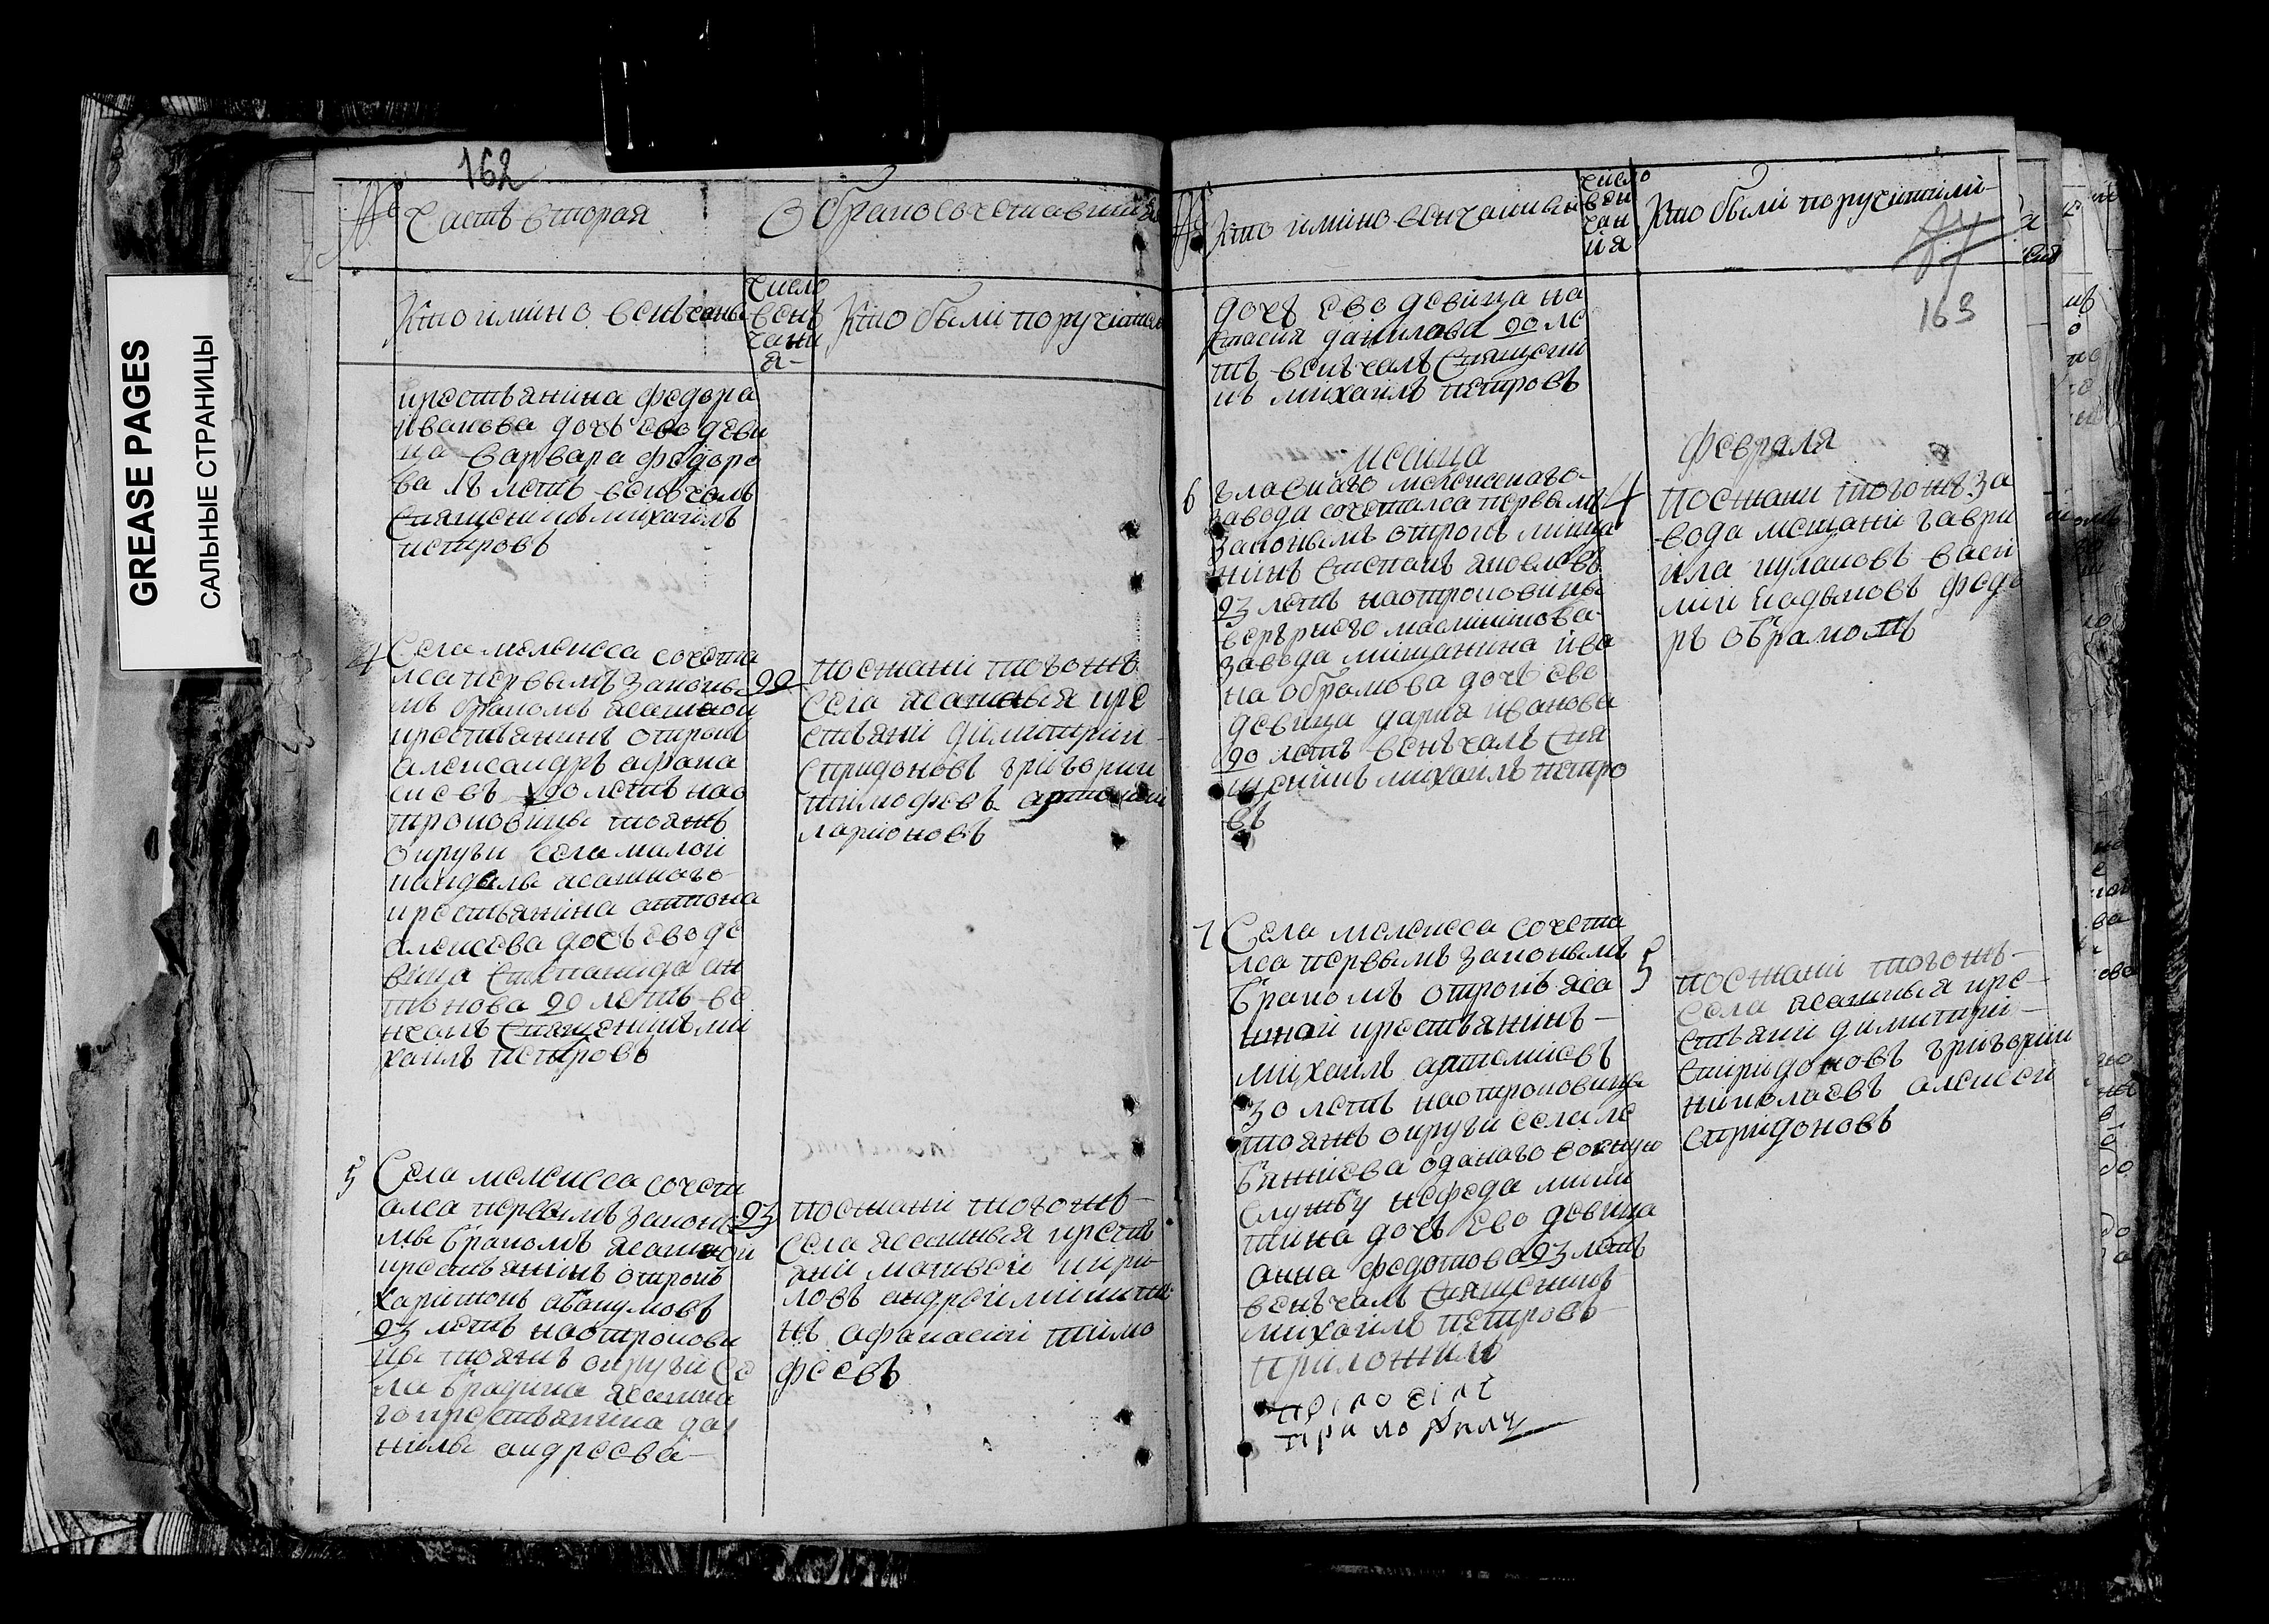 GREASE PAGES
САЛЬНЫЕ СТРАНИЦЫ
162
№ Часть вторая
О бракосочетавши
Кто имяно венчаны
число венъ чани я
Кто были поручител
крестьянина федора
иванова дочь ево деви
ца варвара федоро
ва летъ венчалъ
Священникъ михаилъ
петровъ
4
Села мелекесса сочета
лса первымъ законы
мъ бракомъ ясашной
крестьянинъ отрокъ
александръ афана
сиевъ 20 летъ на о
троковицы тояжъ
округи села малой
кандалы ясашного
крестьянина антона
алексева дочь ево де
вица Степанида ан
тонова 20 летъ ве
нчалъ Священикъ ми
хаилъ петровъ
20
посжани тогожъ
села ясашныя кре
стьяни димитрии
спридоновъ григории
тимофевъ
ларионовъ
5
Села мелекесса сочет
алса первымъ законы
мъ бракомъ ясашной
крестьянинъ отрокъ
харитонъ абакумовъ
23 летъ на отрокови
цы тояжъ округи се
ла брадина ясашна
го крестьянина да
нилы андреева
23
посжани тогожъ
села ясашныя кресть
яни матвей кири
ловъ андрей никити
нъ афанасий тимо
феевъ
№ Кто имяно венчаны
число вен чан ия
Кто были поручители
163
дочь ево девица на
стасия данилова 20 ле
тъ венчалъ Священни
къ михаилъ петровъ
месяца
февраля
6
главнаго мелекескаго
завода сочеталса первымъ
законымъ отрокъ мища
нинъ Степанъ яковлевъ
23 летъ на отроковицы
завода мищанина ива
на обрамова дочь ево
девица дария иванова
20 летъ венъчалъ Свя
щеникъ михаилъ петро
въ
4
посжани тогожъ за
вода мещани гаври
ила кулаковъ васи
лии кадыковъ федо
ръ
7
Села мелекесса сочета
лса первымъ законымъ
бракомъ отрокъ яса
шной крестьянинъ
михаилъ артемиевъ
30 летъ на отроковицы
тояжъ округи села ле
бяжиева оданаго воennую
службу нефеда мики
тина дочь ево девица
анна федотова 23 летъ
венъчалъ Священикъ
михаилъ петровъ
приложилъ
5
посжани тогожъ
села ясашныя кре
стьяни димитрий
спиридоновъ григорий
николаевъ алексей
спридоновъ